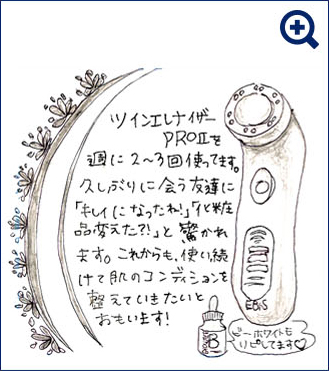 ツインエレナイザー
PROⅡを
週に2〜3回使ってます。
久しぶりに会う友達に
「キレイになったね!」「化粧
品変えた?!」と驚かれ
ます。これからも、使い続
けて肌のコンディションを
整えていきたいと
おもいます!
EBiS
B
ビーホワイトも
リピしてます♡